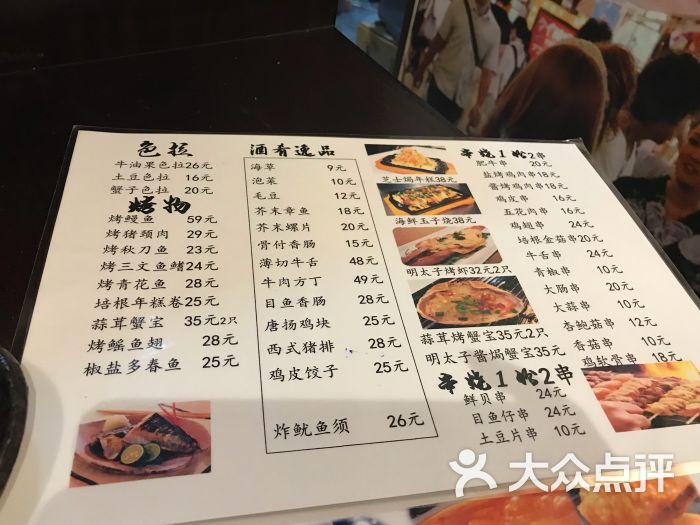 色拉
牛油果色拉26元
土豆色拉 16元
蟹子色拉 20元
烤物
烤鳗鱼 59元
烤猪颈肉 29元
烤秋刀鱼 23元
烤三文鱼鳍24元
烤青花鱼 28元
培根年糕卷25元
蒜茸蟹宝 35元2只
烤鳐鱼翅 28元
椒盐多春鱼 25元
酒肴逸品
海草 9元
泡菜 10元
毛豆 12元
芥末章鱼 18元
芥末螺片 20元
骨付香肠 15元
薄切牛舌 48元
牛肉方丁 49元
目鱼香肠 28元
唐扬鸡块 25元
西式猪排 28元
鸡皮饺子 25元
炸鱿鱼须 26元
芝士焗年糕38元
海鲜玉子烧38元
明太子烤虾32元2只
蒜茸烤蟹宝35元2只
明太子酱焗蟹宝35元
串烧1份2串
肥牛串 20元
盐烤鸡肉串18元
酱烤鸡肉串18元
鸡皮串 16元
五花肉串 16元
鸡翅串 18元
培根金菇串20元
牛舌串 24元
青椒串 10元
大肠串 20元
大蒜串 10元
杏鲍菇串 12元
香菇串 10元
鸡软骨串 18元
串烧1份2串
鲜贝串 24元
目鱼仔串 24元
土豆片串 10元
大众点评